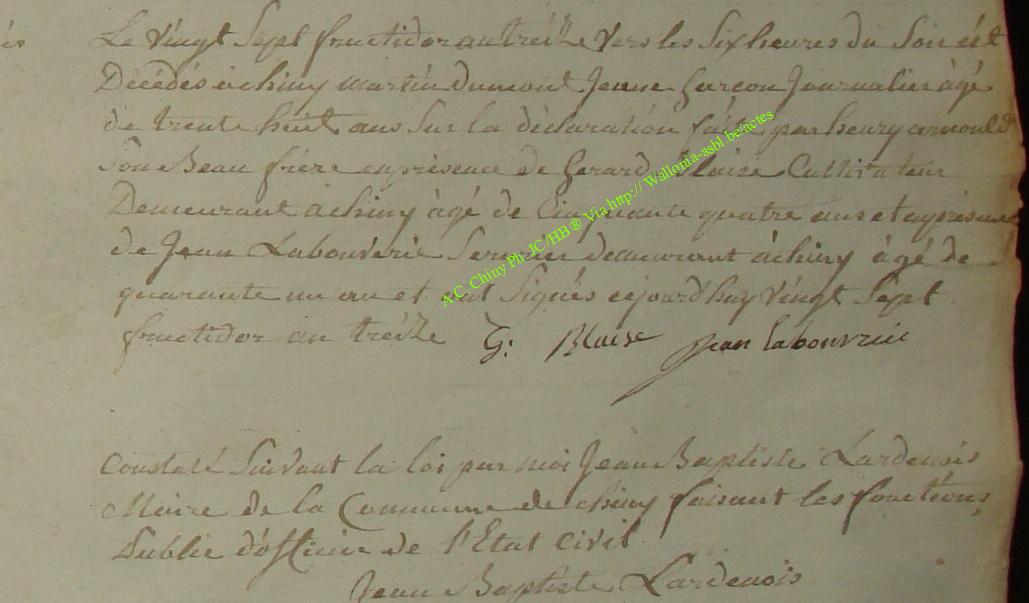 Le vingt Sept fructidor an treize vers les Six heures du Soir est
Décédés à chiny martin dumont Jeune Garcon Journalier âgé
de trente huit ans Sur la déclaration faite par henry arnould
Son Beau frére en présence de Gerard Blaise Cultivateur
Demeurant à chiny âgé de Cinquante quatre ans et
de Jean Labouverie demeurant à chiny âgé de
quarante un an et ont Signés cejourdhuy vingt Sept
fructidor an treize G: Blaise Jean labouverie
Constaté Suivant la loi par moi Jean Baptiste Lardenois
Maire de la Commune de chiny faisant les fonctions
Public d'officier de l'Etat Civil
Jean Baptiste Lardenois
A.C. Chiny Ph-JC/HB® Via http:// Wallonia-asbl.be/actes